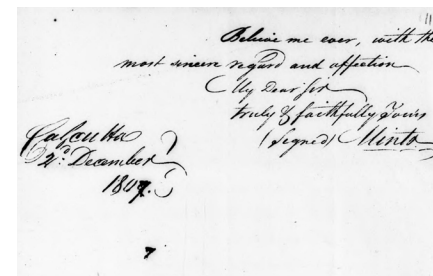 Believe me ever, with the
most sincere regard and affection
My Dear Sir
truly & faithfully Yours
(Signed) Minto
Calcutta
2d. December
1807.